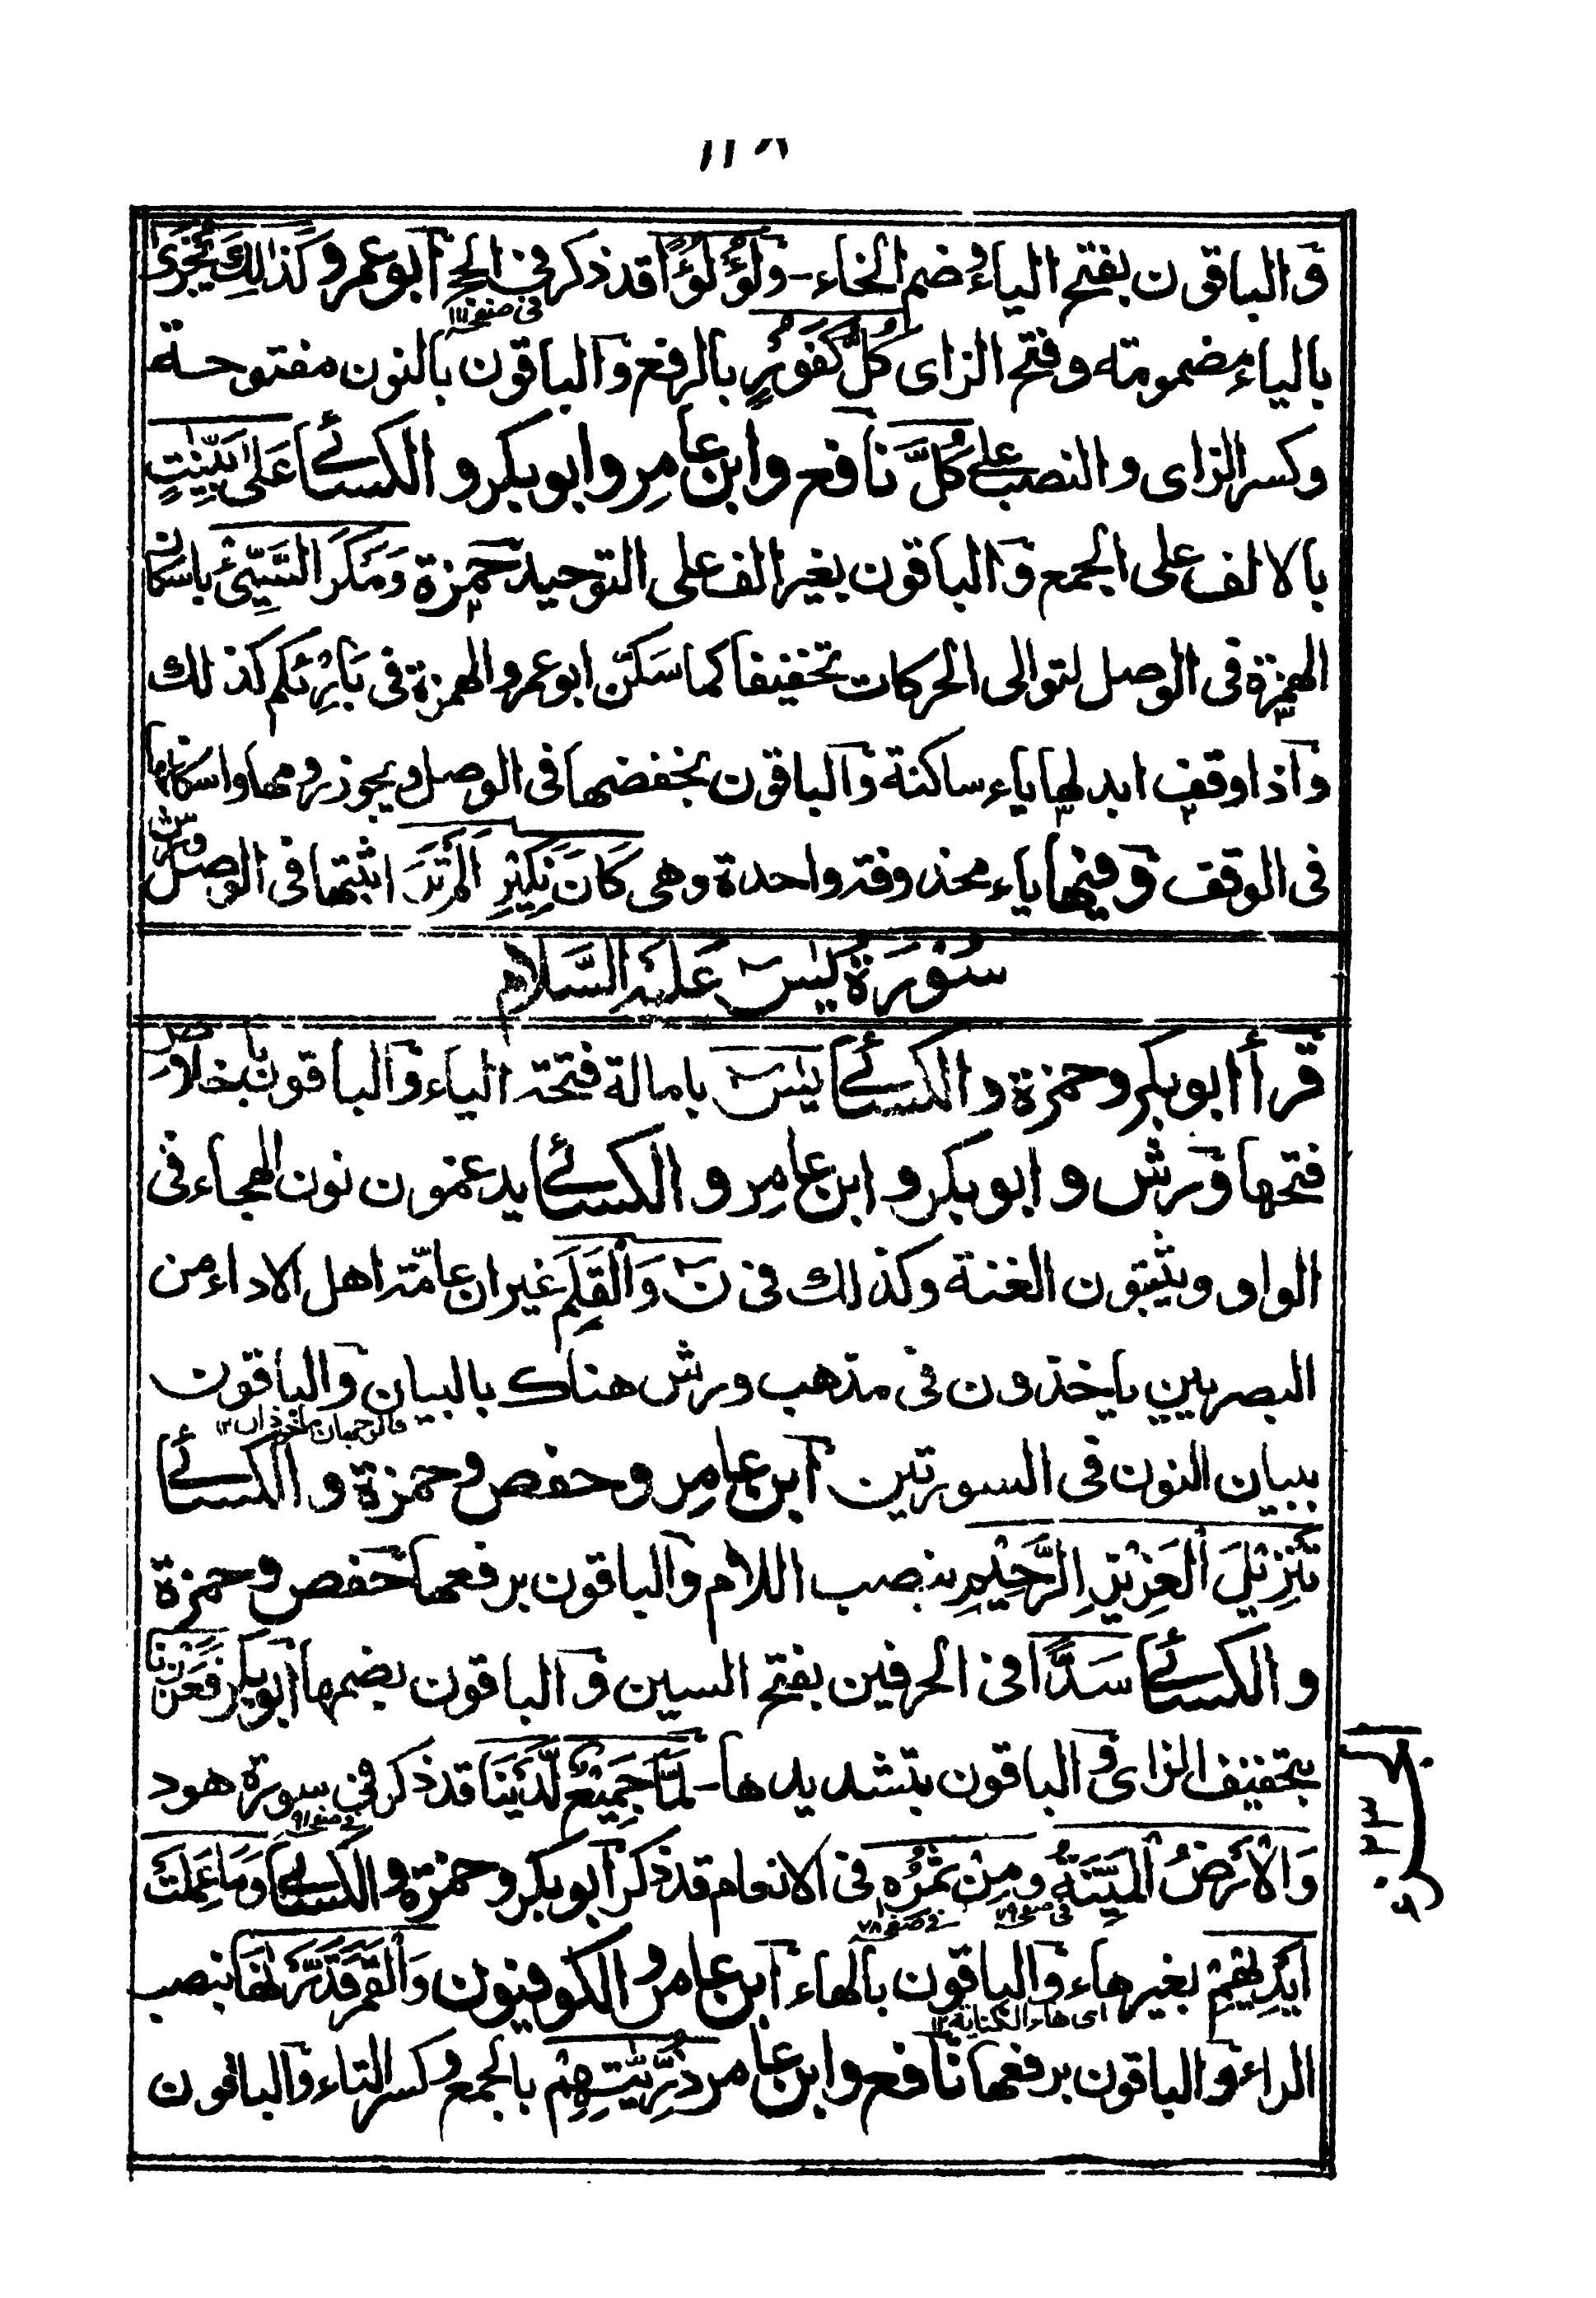 ١١٦
والباقون بفتح الياء وضم الخاء - وَلُؤْلُؤًا قد ذكر فى الحج ابو عمرو كَذٰلِكَ يُجْزٰى
فى صفحة
بالياء مضمومته وفتح الزاى كُلُّ كَفُوْرٍ بالرفع والباقون بالنون مفتوحة
وكسر الزاى والنصب على كُلَّ نافع وابن عامر وابو بكر والكسائے عَلٰى بَيِّنٰتٍ
بالالف على الجمع والباقون بغير الف على التوحيد حمزة وَمَكْرَ السَّيِّئْ باسكان
الهمزة فى الوصل لتوالى الحركات تخفيفا كما سكّن ابو عمرو الهمزة فى بَارِئْكُم كذلك
واذا وقف ابدلها ياء ساكنة والباقون بخفضها فى الوصل ويجوز رومها واسكانها
فى الوقف وفيها ياء محذوفة واحدة وهى كَانَ نَكِيْرِ اَلَمْ تَرَ اثبتها فى الوصل ورش
سُوْرَةُ يٰسٓ عَلَيْهِ السَّلَام
قرأ ابو بكر وحمزة والكسائے يٰسٓ بامالة فتحة الياء والباقون باخلاص
فتحها ورش وابو بكر وابن عامر والكسائے يدغمون نون الهجاء فى
الواو ويثبتون الغنة وكذلك فى نٓ وَالْقَلَمِ غير ان عامّة اهل الاداء من
البصريين ياخذون فى مذهب ورش هناك بالبيان والباقون
والوجهان ماخوذان ١٢
ببيان النون فى السورتين ابن عامر وحفص وحمزة والكسائے
تَنْزِيْلَ الْعَزِيْزِ الرَّحِيْمِ بنصب اللام والباقون برفعها حفص وحمزة
والكسائے سَدًّا فى الحرفين بفتح السين والباقون بضمها ابو بكر فَعَزَزْنَا
بتخفيف الزاى والباقون بتشديدها - لَمَّا جَمِيْعٌ لَّدَيْنَا قد ذكر فى سورة هود
فى صفحة ٩١
وَالْاَرْضُ الْمَيْتَةُ وَمِنْ ثَمَرِهٖ فى الانعام قد ذكر ابو بكر وحمزة والكسائے وَمَا عَمِلَتْ
فى صفحة ٧٩ فى صفحة ٧٨
اَيْدِيْهِمْ بغير هاء والباقون بالهاء ابن عامر والكوفيون وَالْقَمَرَ قَدَّرْنٰهُ بنصب
اى هاء الكناية ١٢
الراء والباقون برفعها نافع وابن عامر ذُرِّيّٰتِهِمْ بالجمع وكسر التاء والباقون